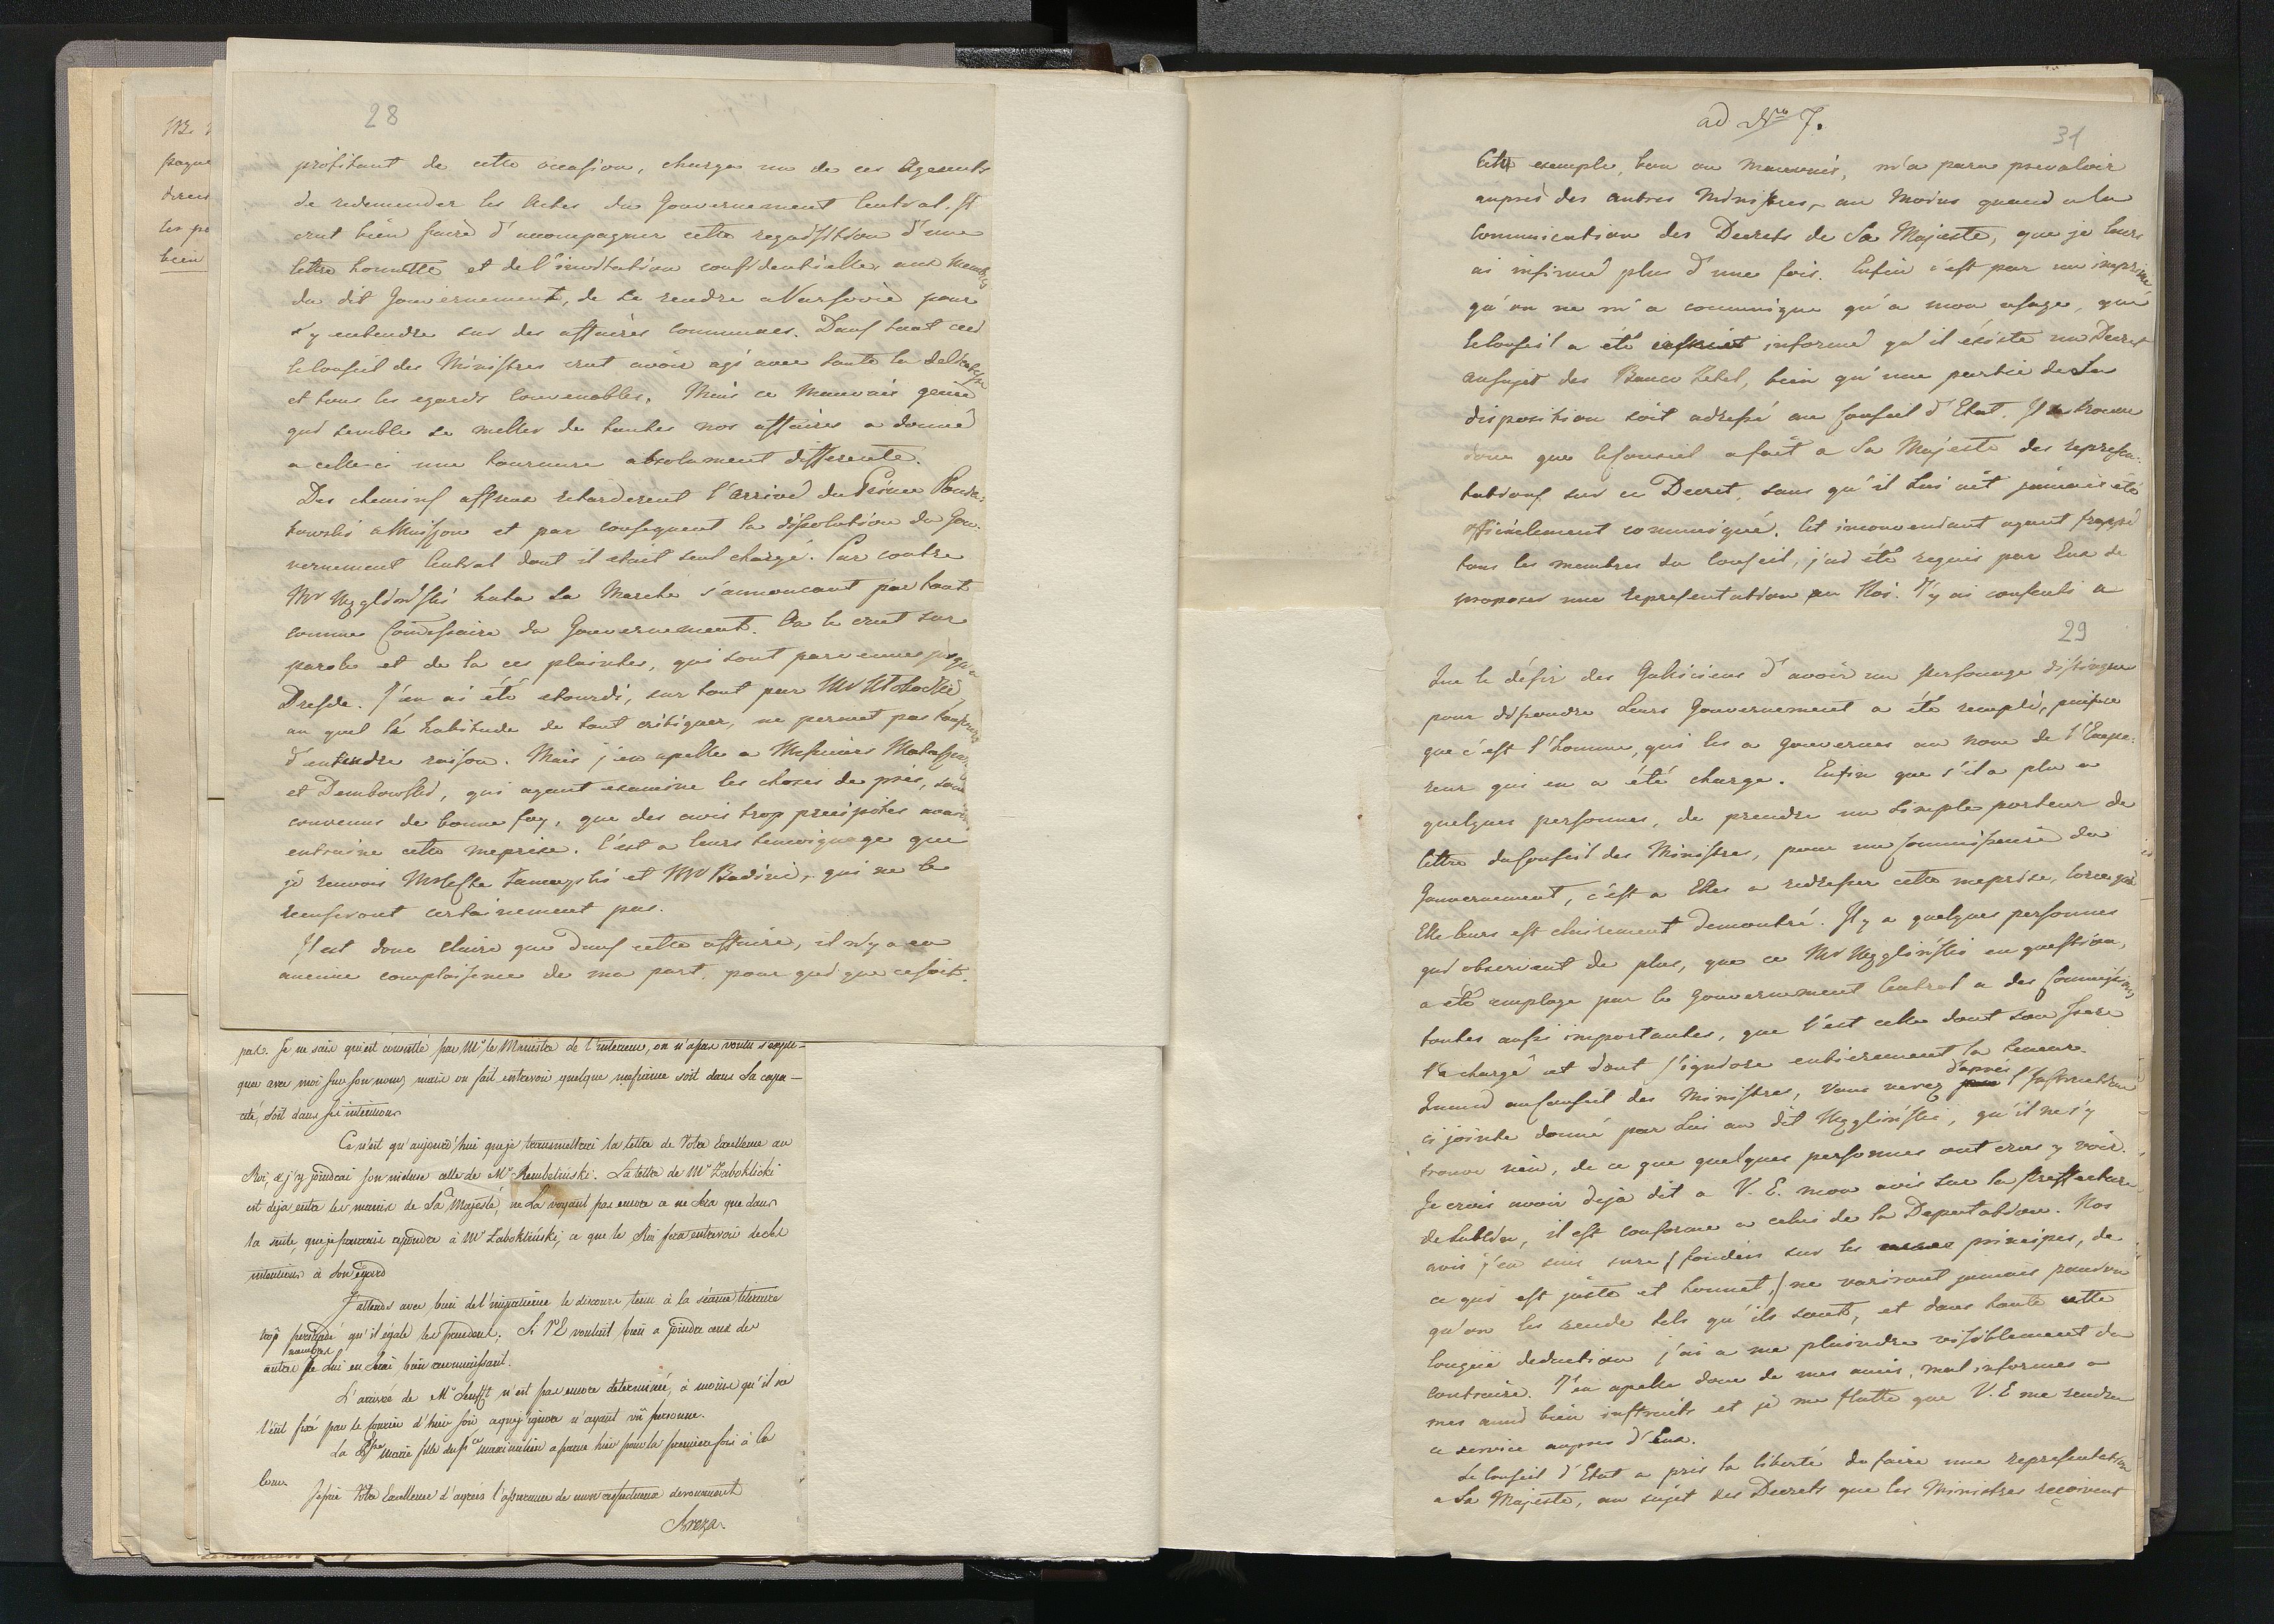 28
profitant de cette occasion, charga un de ces Agents
de redemender les Actes du Gouvernement Central. Il
crut bien faire d'accompagner cette requisition d'une
lettre honnette et de l'invitation confidentielle, aux Membres
du dit Gouvernement, de se rendre a Varsovie pour
s'y entendre sur des affaires communes. Dans tout ceci
le Conseil des Ministres crut avoir agi avec toute la delicatesse
et tous les egards convenables. Mais ce mauvais genie
qui semble se meller de toutes nos affaires a donné
a celle ci une tournure absolument differente.
Des chemins affreux retarderent l'arrivé du Prince Ponia-
towski a et par consequent la dissolution du Gou-
vernement Central dont il etait seul chargé. Par contre
Mr hata sa Marche s'annoncant par tout
comme Comissaire du Gouvernement. On le crut sur
parole et de la ces plaintes, qui sont parvenues jusqu'a
Dresde. J'en ai été etourdi, sur tout par Mr
au quel la habitude de tout critiquer, ne permet pas toujours
d'entendre raison. Mais j'en apelle a Messieurs
et Dembowski, qui ayant examine les choses de près, sont
convenus de bonne foy, que des avis trop precipités avaient
entrainé cette meprise. C'est a leurs temoignage que
je renvois Mr le Cte Zamoyski et Mr Badeni, qui ne le
recuseront certainement pas.
Il est donc claire que dans cette affaire, il n'y a eu
aucune complaisence de ma part, pour qui que ce soit.
pas. Je ne sais qui est consulté par Mr le Ministre de l'interieur, on n'a pas voulu s'expli-
quer avec moi sur son nom, mais on fait entrevoir quelque mefiance soit dans Sa capa-
cité, soit dans ses intentions
Ce n'est qu'aujourd'hui que je transmettrai la lettre de Votre Excellence au
Roi, et j'y joindrai son incluse celle de Mr Rembelinski. La lettre de Mr Zaboklicki
est deja entre les mains de Sa Majesté, ne La voyant pas encore ce ne sera que dans
la suite, que je pourrais repondre à Mr Zaboklinski, ce que le Roi fera entrevoir de Ses
intentions à son égard
J'attends avec bien de l'impatience le discours tenu à la séance literaire
trop persuadé qu'il égale les precedens; Si V E vouloit bien y joindre ceux des
autres membres je Lui en serai bien reconnoissant.
L'arrivée de Mr Senfft n'est pas encore determinée, à moins qu'il ne
l'eût fixé par le courrier d'hier soir ce que j'ignore n'ayant vû personne.
La Psse Marie fille du Pce Maximilien a parue hier pour la premiere fois à la
Cour
Je prie Votre Excellence d'agréer l'assurance de mon respectueux devouement
Breza.
ad Nro 7.
31
Cette exemple, bon ou mauvais, m'a paru prevaloir
aupres des autres Ministres, au moins quand a la
communication des Decrets de Sa Majeste, que je leurs
ai plus d'une fois. Enfin c'est par un imprimé
qu'on ne m'a communiqué qu'a mon usage, que
le Conseil a été informé qu'il éxiste un Decret
au sujet des Banco Zetel, bien qu'une partie de la
disposition soit adressé au Conseil d'Etat. Il se trouve
donc que le Conseil a fait a Sa Majeste des represen-
tations sur ce Decret, sans qu'il lui ait jamais eté
officielement communiqué. Cet inconvenient ayant frappé
tous les membres du Conseil, j'ai été requis par Eux de
proposer une representation au Roi. J'y ai consenti a
29
Que le désir des Galiciens d'avoir un personage distingue
pour dissoudre leurs Gouvernement a été rempli, puisque
que c'est l'homme, qui les a gouvernes au nom de l'Empe-
reur qui en a été charge. Enfin que s'il a plu a
quelques personnes, de prendre un simple porteur de
lettre du Conseil des Ministres, pour un Commissaire du
Gouvernement, c'est a Elles a redresser cette meprise, lorsque
Elle leurs est clairement demontré. Il y a quelques personnes
qui observent de plus, que ce Mr en question,
a été employe par le Gouvernement Central a des Commissions
toutes aussi importantes, que l'est celle dont son frere
l'a chargé et dont j'ignore entierement la teneur.
Quand au Conseil des Ministres, Vous verez d'apres l'Instruction
ci jointe donné par Lui au dit , qu'il ne s'y
trouve rien, de ce que quelques personnes ont cru y voir.
Je crois avoir deja dit a V. E. mon avis sur la Preffecture
de Lublin, il est conforme a celui de la Deputation. Nos
avis j'en suis sure (fondées sur les principes, de
ce qui est juste et honnet,) ne varieront jamais pourvu
qu'on les rende tels qu'ils sont, et dans toute cette
longue deduction j'ai a me plaindre visiblement du
contraire. J'en apelle donc de mes amis, mal informes a
mes amis bien instruits et je me flatte que V. E me rendra
ce service aupres d'Eux.
Le Conseil d'Etat a pris la liberté de faire une representation
a Sa Majeste, au sujet des Decrets que les Ministres reçoivent